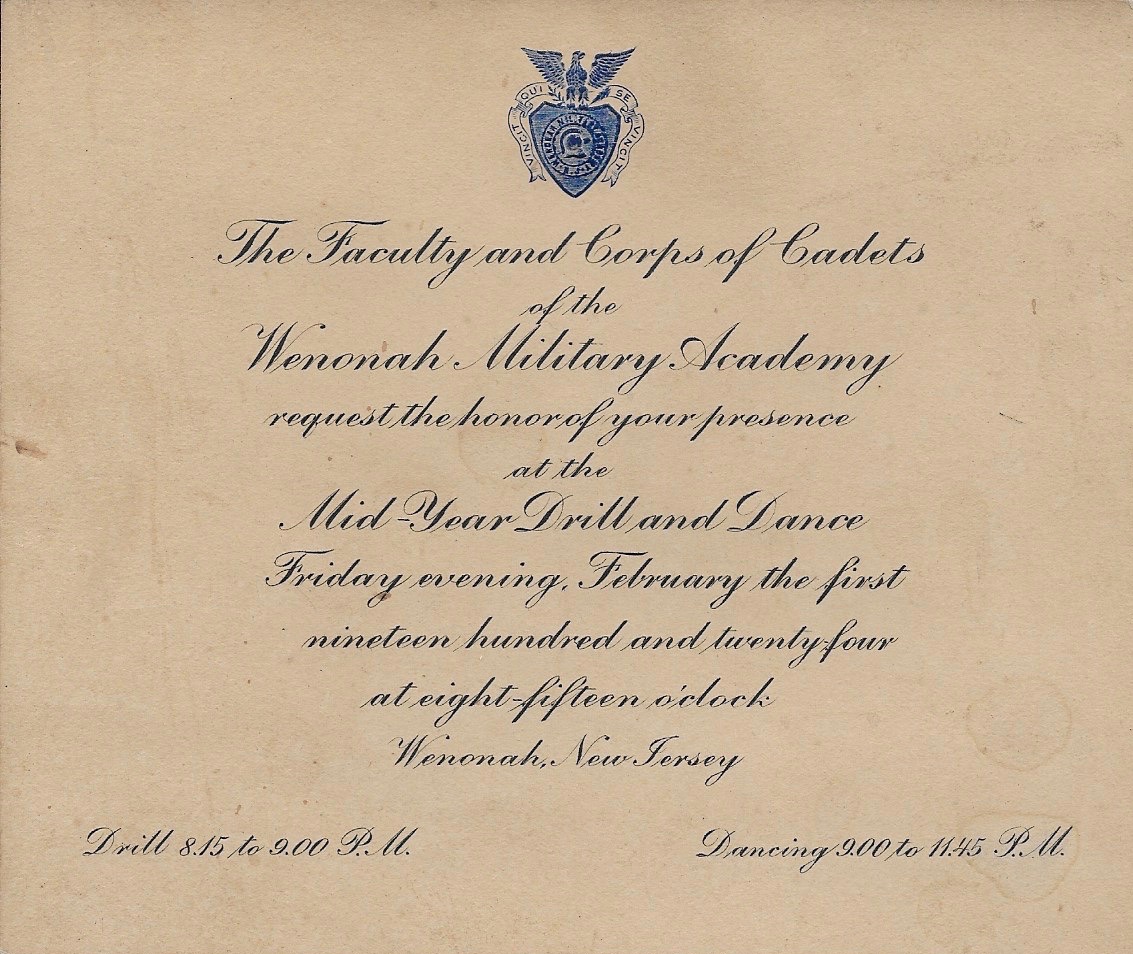 VINCIT QUI SE VINCIT
The Faculty and Corps of Cadets
of the
Wenonah Military Academy
request the honor of your presence
at the
Mid-Year Drill and Dance
Friday evening, February the first
nineteen hundred and twenty-four
at eight-fifteen o'clock
Wenonah, New Jersey
Drill 8.15 to 9.00 P.M.
Dancing 9.00 to 11.45 P.M.